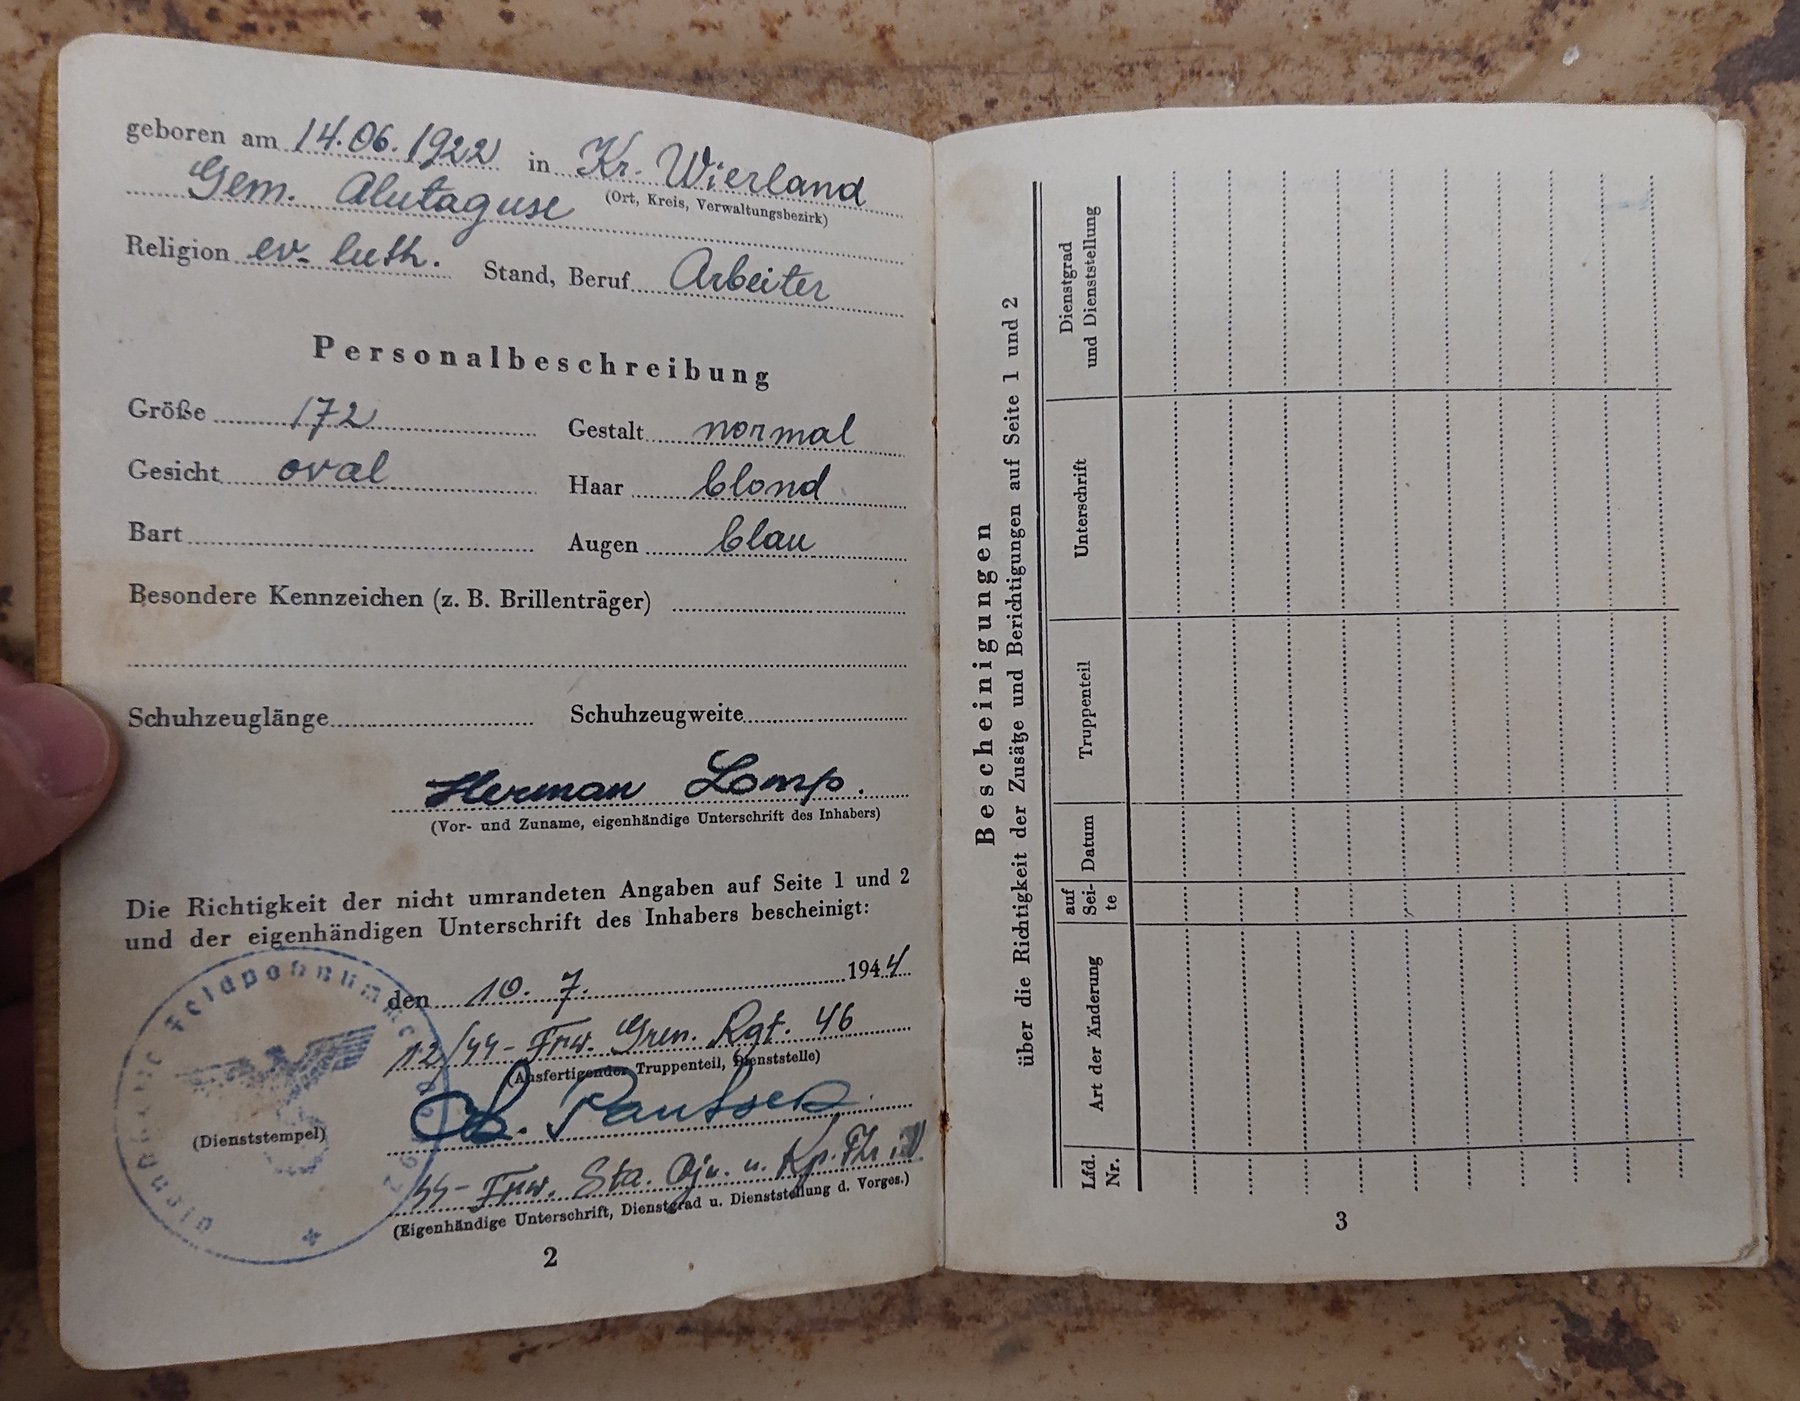 geboren am 14.06.1922 in Kr. Wierland
(Ort, Kreis, Verwaltungsbezirk)
Gem. Alutaguse
Religion ev. luth. Stand, Beruf Arbeiter
Personalbeschreibung
Größe 172 Gestalt normal
Gesicht oval Haar blond
Bart Augen blau
Besondere Kennzeichen (z. B. Brillenträger)
Schuhzeuglänge Schuhzeugweite
Herman Lomp.
(Vor- und Zuname, eigenhändige Unterschrift des Inhabers)
Die Richtigkeit der nicht umrandeten Angaben auf Seite 1 und 2
und der eigenhändigen Unterschrift des Inhabers bescheinigt:
den 10. 7. 1944
12/SS-Frw. Gren. Rgt. 46
(Ausfertigender Truppenteil, Dienststelle)
(Dienststempel)
SS-Frw. Sta. Oju. u. Kp. Fhr.
(Eigenhändige Unterschrift, Dienstgrad u. Dienststellung d. Vorges.)
2
Bescheinigungen
über die Richtigkeit der Zusätze und Berichtigungen auf Seite 1 und 2
Lfd. Nr.
Art der Änderung
auf Sei- te
Datum
Truppenteil
Unterschrift
Dienstgrad
und Dienststellung
3